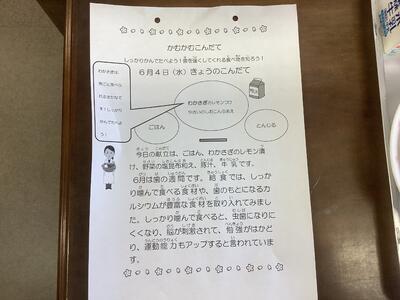 かむかむこんだて
しっかりかんでたべよう！歯を強くしてくれる食べ物を知ろう！
6月4日（水）きょうのこんだて
わかさぎは、
骨ごと食べら
れるさかなで
す！しっかり
かんでたべよ
う！
わかさぎのレモンづけ
やさいのしおこんぶあえ
ごはん
とんじる
今日の献立は、ごはん、わかさぎのレモン漬
け、野菜の塩昆布和え、豚汁、牛乳です。
6月は歯の週間です。給食では、しっかり
噛んで食べる食材や、歯のもとになるカ
ルシウムが豊富な食材を取り入れてみまし
た。しっかり噛んで食べると、虫歯になりに
くくなり、脳が刺激されて、勉強がはか
どり、運動能力もアップすると言われていま
す。